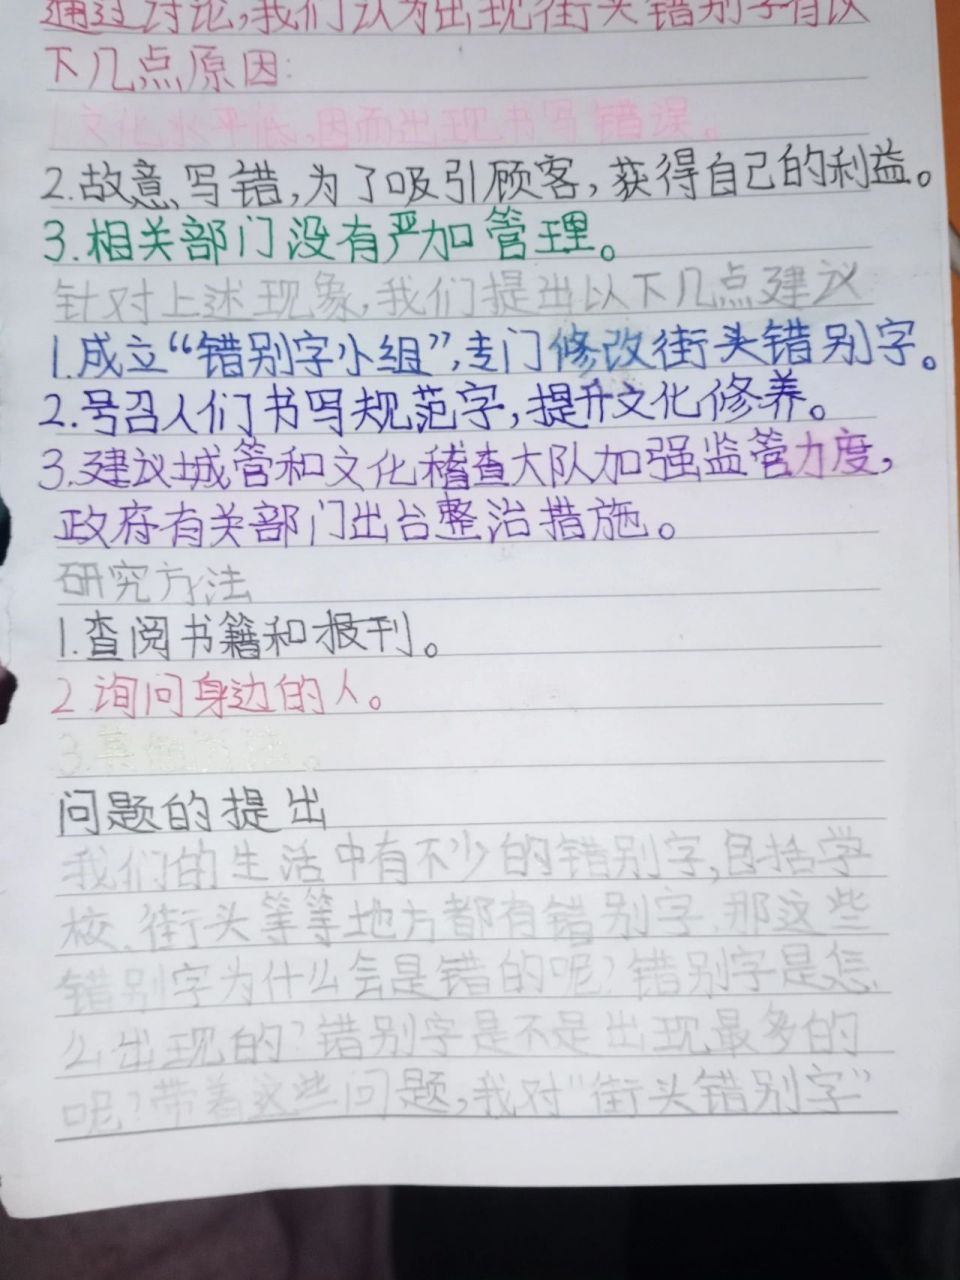 通过讨论,我们认为出现街头错别字有以
下几点原因:
1.文化水平低,因而出现书写错误。
2.故意写错,为了吸引顾客,获得自己的利益。
3.相关部门没有严加管理。
针对上述现象,我们提出以下几点建议
1.成立“错别字小组”,专门修改街头错别字。
2.号召人们书写规范字,提升文化修养。
3.建议城管和文化稽查大队加强监管力度,
政府有关部门出台整治措施。
研究方法
1.查阅书籍和报刊。
2询问身边的人。
3.其他方法。
问题的提出
我们的生活中有不少的错别字,包括学
校、街头等等地方都有错别字,那这些
错别字为什么会是错的呢?错别字是怎
么出现的?错别字是不是出现最多的
呢?带着这些问题,我对“街头错别字”